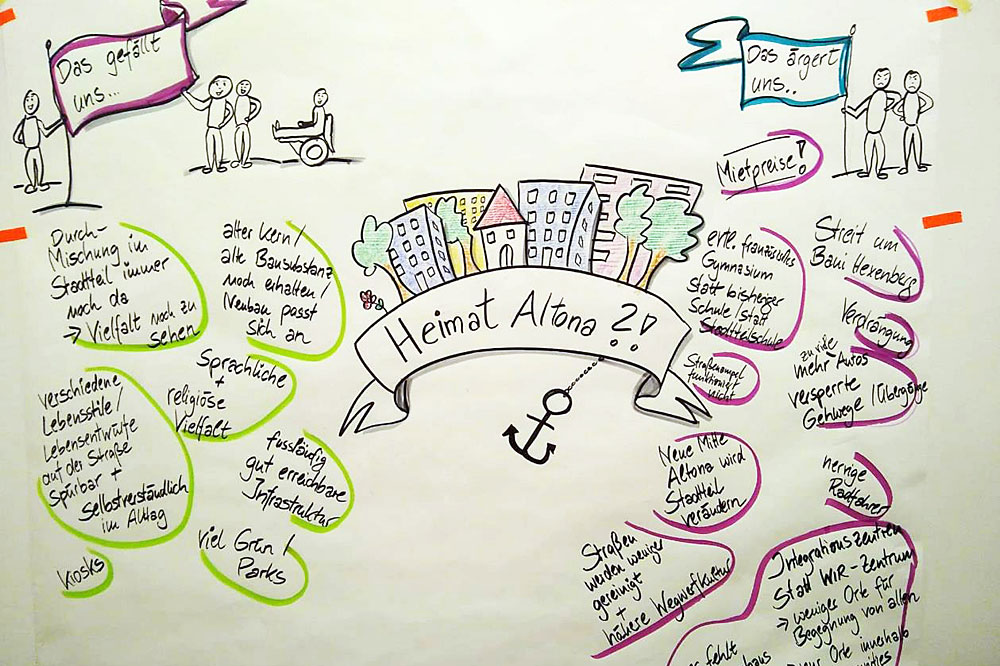 Das gefällt
uns...
Das ärgert
uns..
Mietpreise!
Heimat Altona ?!
Durch-
Mischung im
Stadtteil immer
noch da
→ Vielfalt noch zu
sehen
alter Kern/
alte Bausubstanz
noch erhalten/
Neubau passt
sich an
Sprachliche
+
religiöse
Vielfalt
verschiedene
Lebensstile/
Lebensentwürfe
auf der Straße
Spürbar +
Selbstverständlich
im Alltag
fussläufig
gut erreichbare
Infrastruktur
viel Grün/
Parks
Kiosks
erte. französisches
Gymnasium
statt bisheriger
Schule/statt
Stadtteilschule
Streit um
Bani Hexenberg
Verdrängung
zu viele
mehr Autos
versperrte
Gehwege/Übergänge
Straßenampel
funktioniert
nicht
Neue Mitte
Altona wird
Stadtteil
verändern
nervige
Radfahrer
Straßen
werden weniger
gereinigt
+
höhere Wegwerfkultur
Integrationszentren
Statt WIR-Zentrum
→ weniger Orte für
Begegnung von allen
Orte innerhalb
fehlt
haus